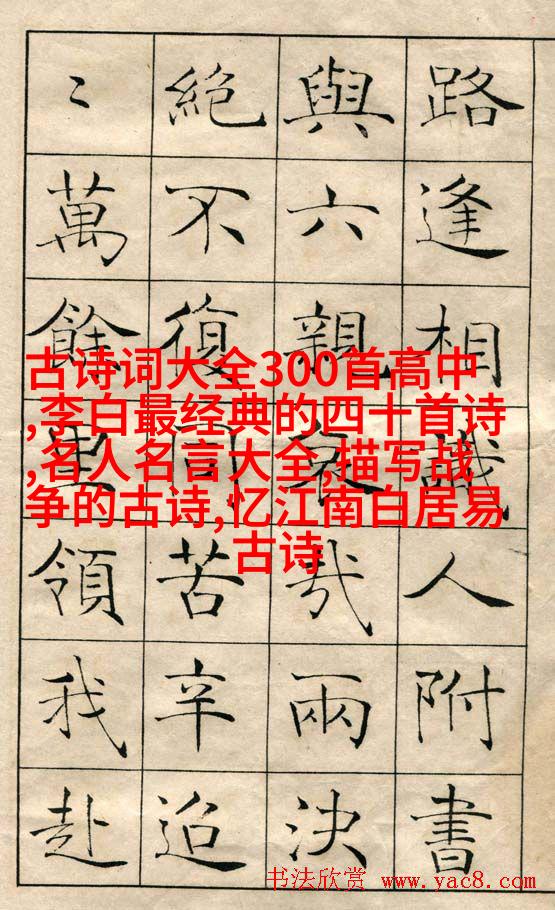 路逢相識人附書
與六親哀哉兩決
絶不復同苦辛迢
〻萬餘里領我赴
古诗词大全300首高中
,李白最经典的四十首诗
,名人名言大全,描写战
争的古诗,忆江南白居易
古诗
书法欣赏 www.yac8.com